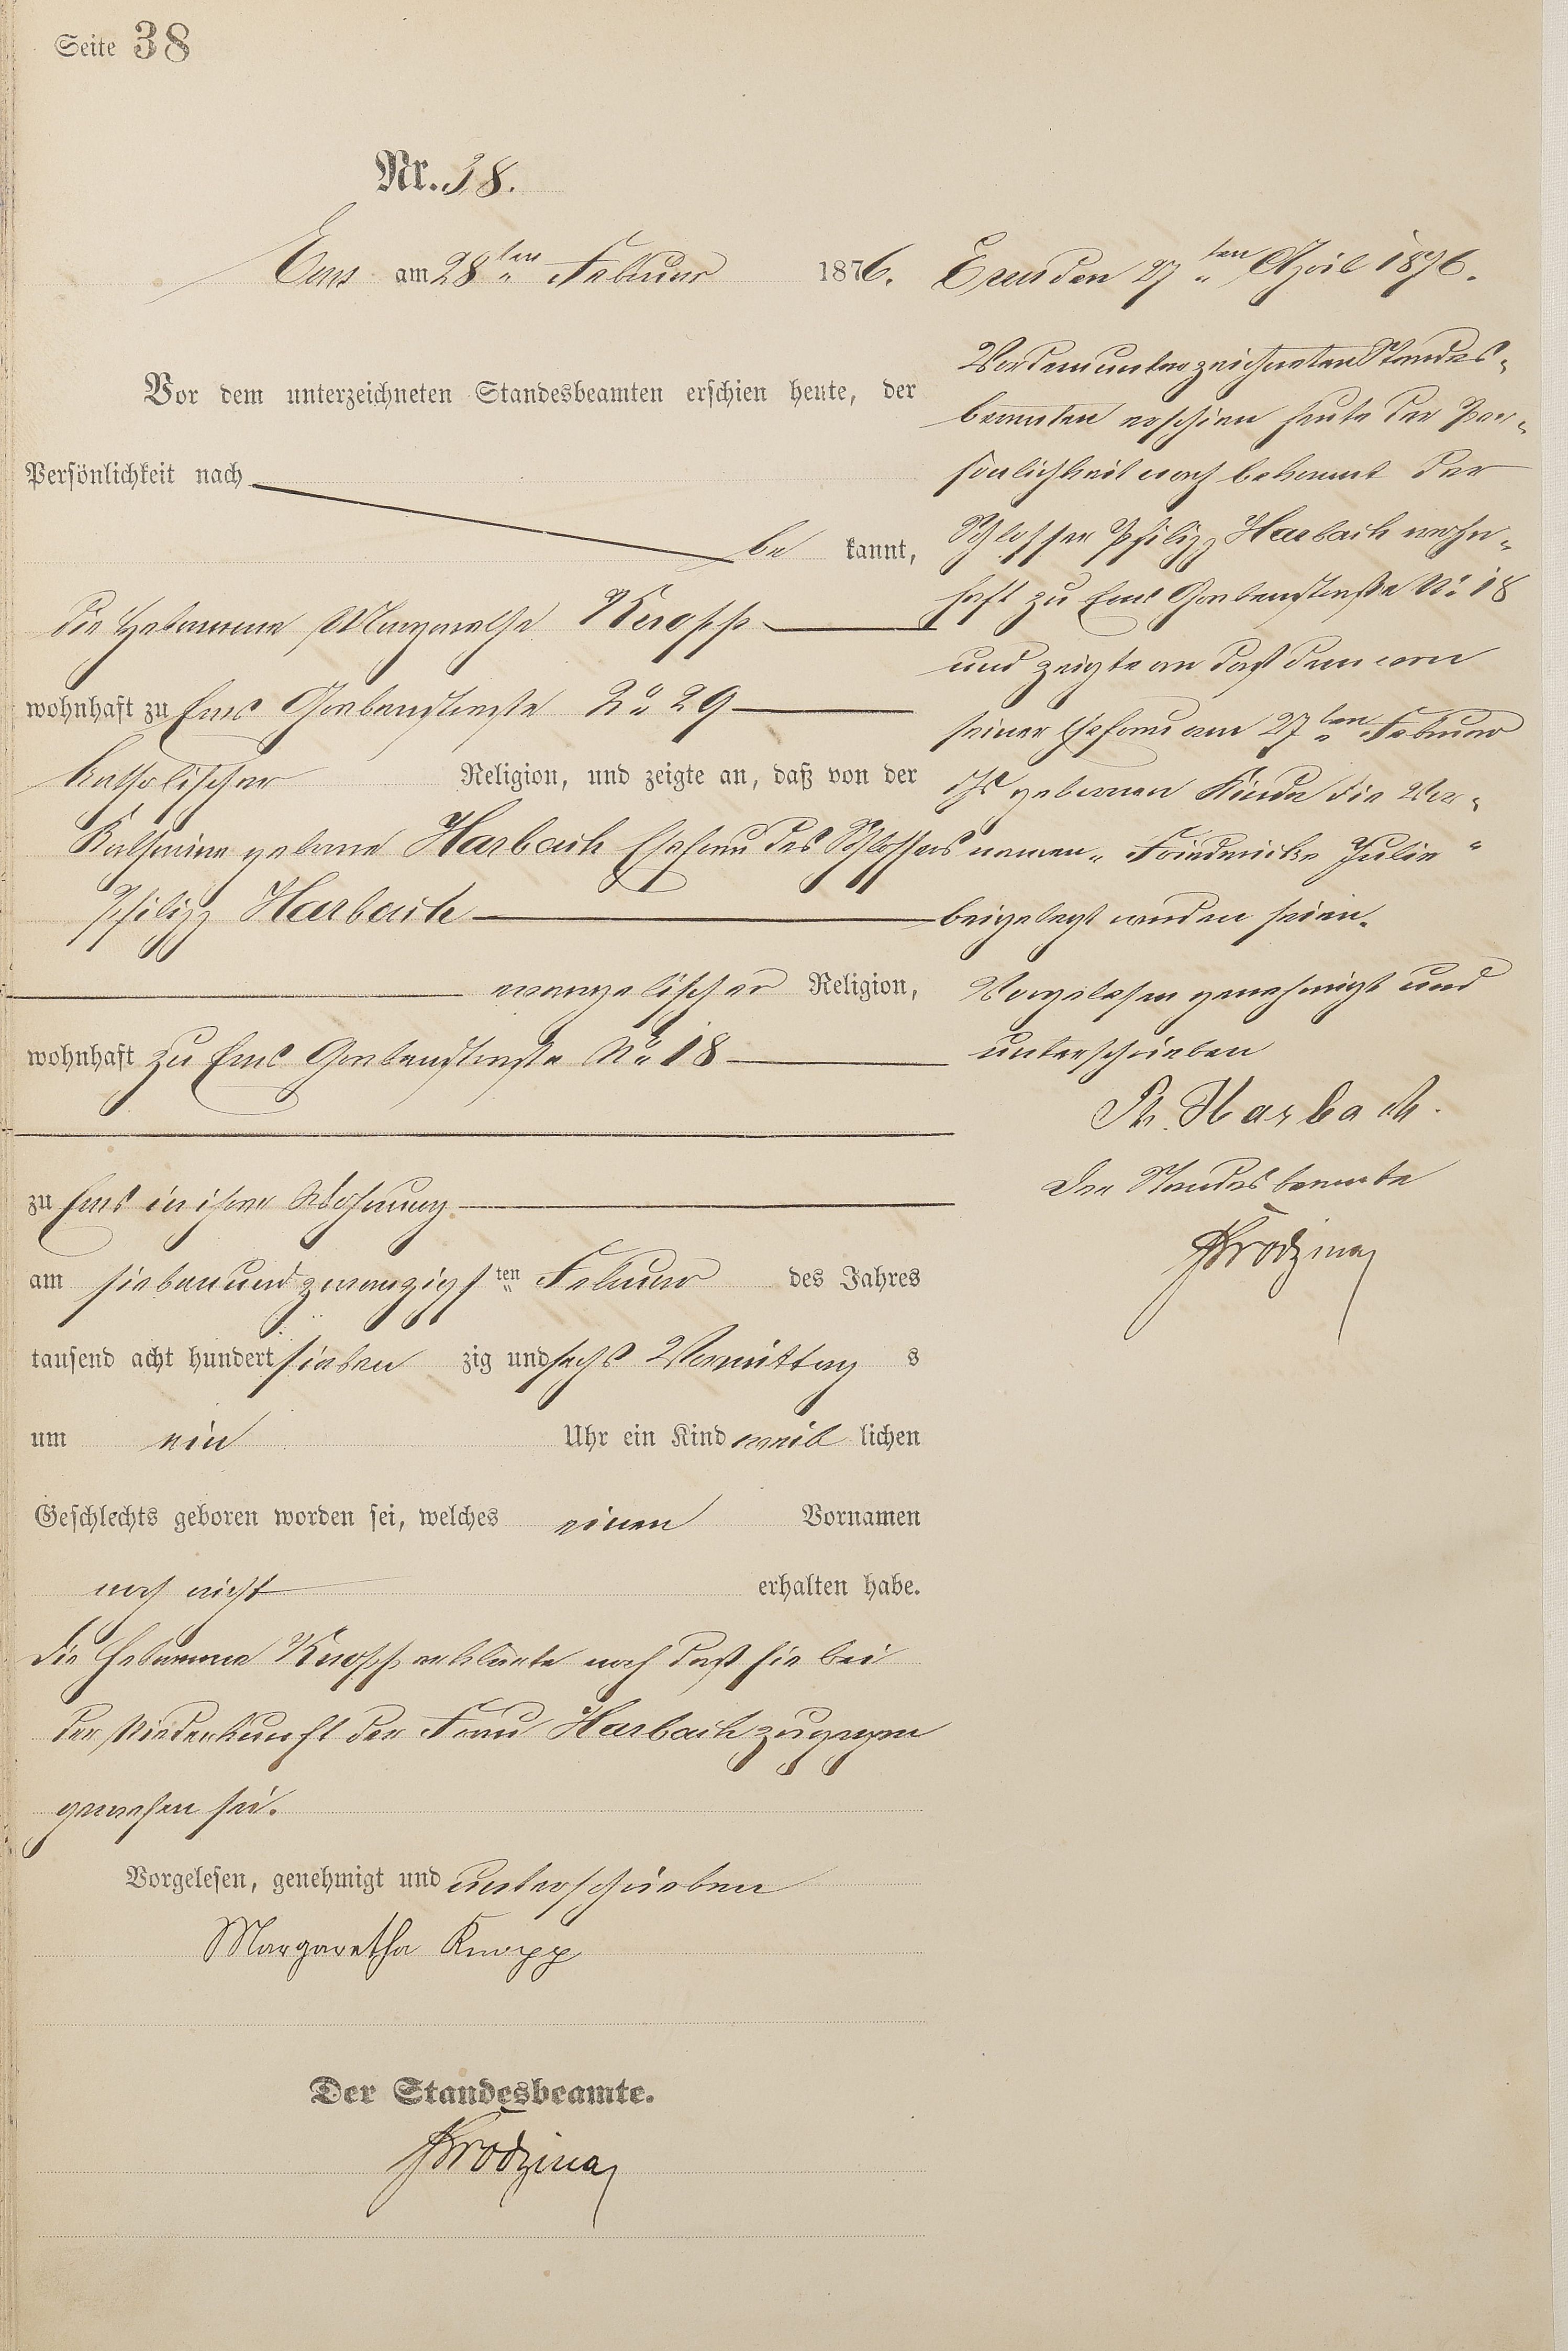 Seite 38
Nr. 38.
Ems am 28ten Februar 1876.
Vor dem unterzeichneten Standesbeamten erschien heute, der
Persönlichkeit nach
be kannt,
die Hebamme Margarethe Knopp
wohnhaft zu Ems Grabenstraße No 29
katholischer Religion, und zeigte an, daß von der
Katharina geborne Harbach Ehefrau des Schlossers
Philipp Harbach
evangelischer Religion,
wohnhaft zu Ems Grabenstraße No 18
zu Ems in ihrer Wohnung
am siebenundzwanzigsten Februar des Jahres
tausend acht hundert sieben zig und sechs Vormittag s
um ein Uhr ein Kind weib lichen
Geschlechts geboren worden sei, welches einen Vornamen
noch nicht erhalten habe.
die Hebamme Knopp erklärte noch daß sie bei
der Niederkunft der Frau Harbach zugegen
gewesen sei.
Vorgelesen, genehmigt und unterschrieben
Margaretha Knopp
Der Standesbeamte.
Ems den 27ten April 1876.
Vor dem unterzeichneten Standes-
beamten erschien heute der Per-
sönlichkeit nach bekannt der
Schlosser Philipp Harbach wohn-
haft zu Ems Grabenstraße No 18
und zeigte an daß dem von
seiner Ehefrau am 27ten Februar
ds gebornen Kinde die Vor-
namen „Friedericke Julie“
beigelegt worden seien.
Vorgelesen genehmigt und
unterschrieben
Ph. Harbach.
Der Standesbeamte